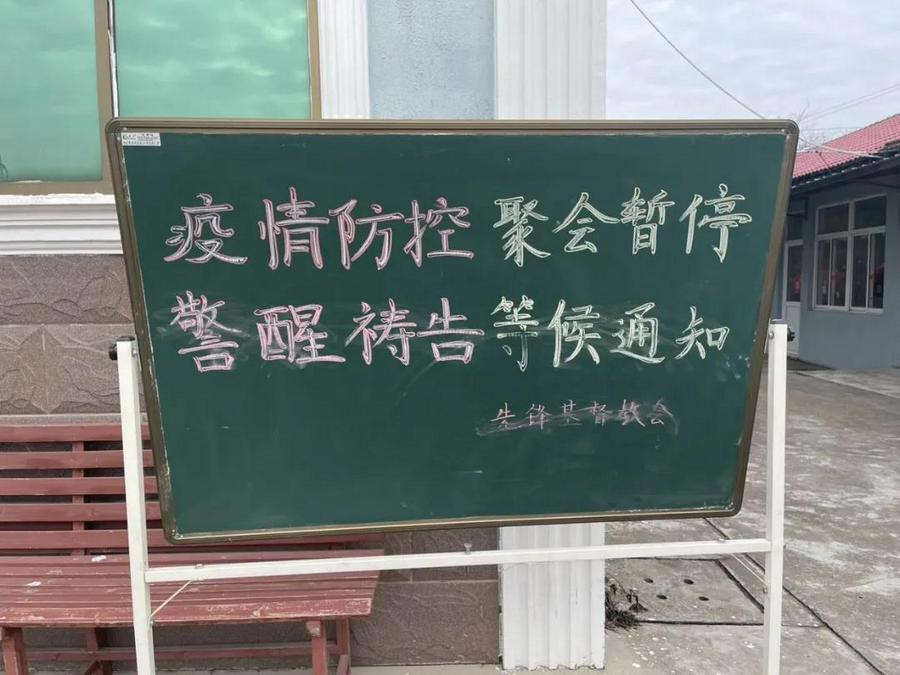 疫情防控 聚会暂停
警醒祷告 等候通知
先锋基督教会